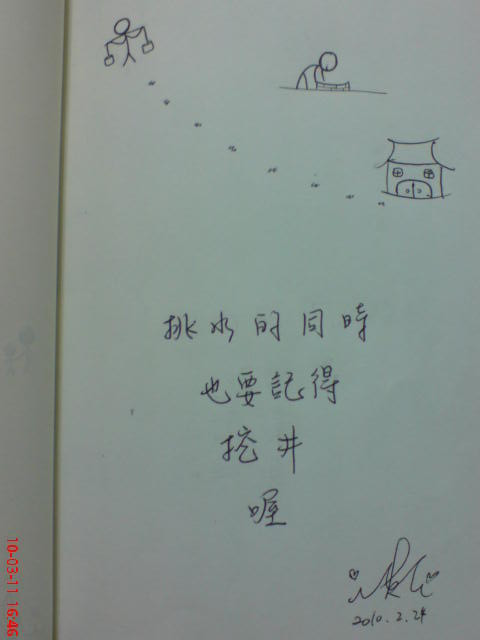 挑水的同時
也要記得
挖井
喔
2010.2.24
10-03-11 16:46